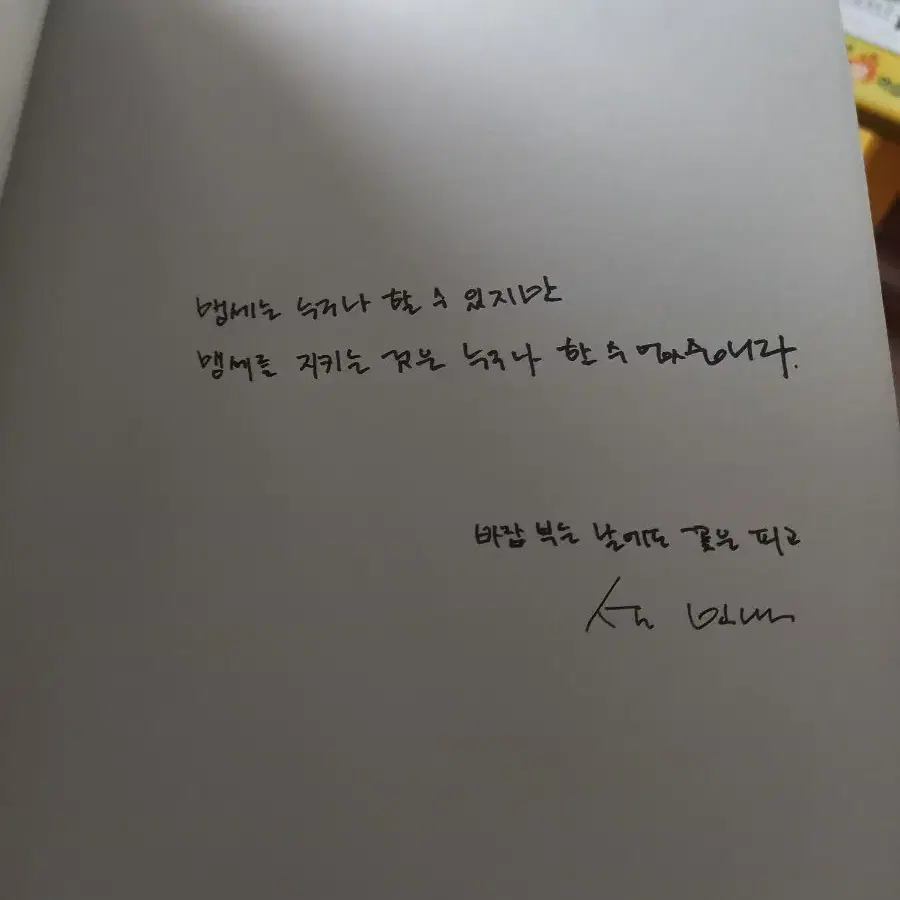 맹세는 누구나 할 수 있지만
맹세를 지키는 것은 누구나 할 수 없습니다.
바람 부는 날에도 꽃은 피고